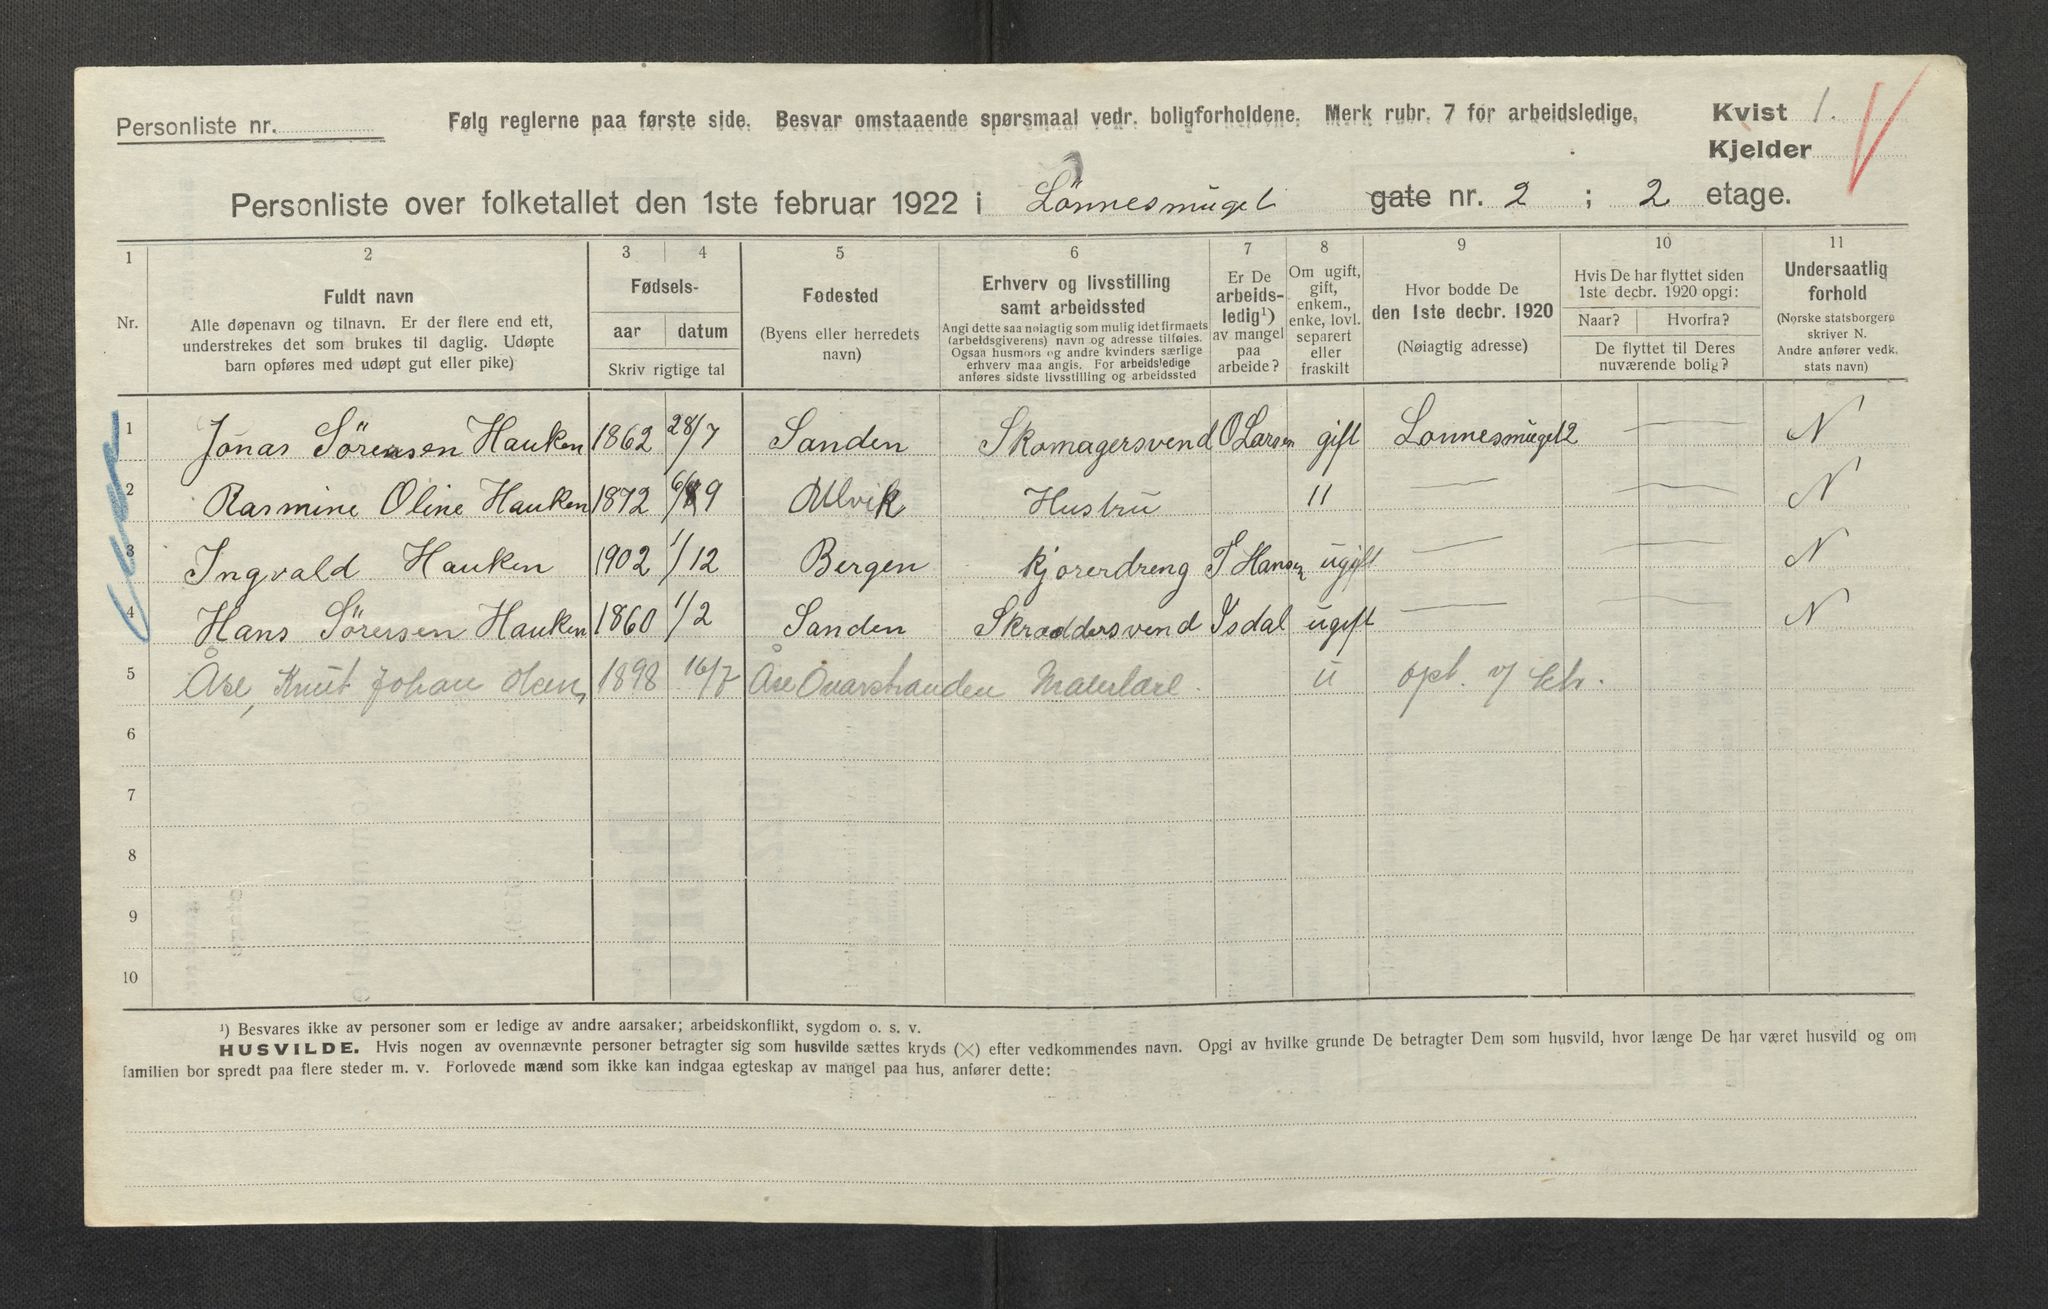 Personliste nr.
Følg reglerne paa første side. Besvar omstaaende spørsmaal vedr. boligforholdene. Merk rubr. 7 for arbeidsledige.
Kvist 1.
Kjelder
Personliste over folketallet den 1ste februar 1922 i Lönnesmuget gate nr. 2 ; 2 etage.
1 2 3 4 5 6 7 8 9 10 11
Nr.
Fuldt navn
Alle døpenavn og tilnavn. Er der flere end ett,
understrekes det som brukes til daglig. Udøpte
barn opføres med udøpt gut eller pike)
Fødsels-
aar datum
Skriv rigtige tal
Fødested
(Byens eller herredets
navn)
Erhverv og livsstilling
samt arbeidssted
Angi dette saa nøiagtig som mulig idet firmaets
(arbeidsgiverens) navn og adresse tilføies.
Ogsaa husmors og andre kvinders særlige
erhverv maa angis. For arbeidsledige
anføres sidste livsstilling og arbeidssted
Er De
arbeids-
ledig¹)
av mangel
paa
arbeide?
Om ugift,
gift,
enkem.,
enke, lovl.
separert
eller
fraskilt
Hvor bodde De
den 1ste decbr. 1920
(Nøiagtig adresse)
Hvis De har flyttet siden
1ste decbr. 1920 opgi:
Naar? Hvorfra?
De flyttet til Deres
nuværende bolig?
Undersaatlig
forhold
(Norske statsborgere
skriver N.
Andre anfører vedk.
stats navn)
1 Jonas Sörensen Hauken 1862 28/7 Sanden Skomagersvend O Larsen gift Lonnesmuget 2 — N
2 Rasmine Oline Hauken 1872 6/9 Ulvik Hustru " — — N
3 Ingvald Hauken 1902 1/12 Bergen Kjorerdreng T Hansen ugift — — N
4 Hans Sörensen Hauken 1860 1/2 Sanden Skraddersvend Isdal ugift — — N
5 Åse, Knut Johan Olsen, 1898 16/7 Åse Malerlærl. u opt. v/ ktr.
6
7
8
9
10
¹) Besvares ikke av personer som er ledige av andre aarsaker; arbeidskonflikt, sygdom o. s. v.
HUSVILDE. Hvis nogen av ovennævnte personer betragter sig som husvilde sættes kryds (×) efter vedkommendes navn. Opgi av hvilke grunde De betragter Dem som husvild, hvor længe De har været husvild og om
familien bor spredt paa flere steder m. v. Forlovede mænd som ikke kan indgaa egteskap av mangel paa hus, anfører dette: